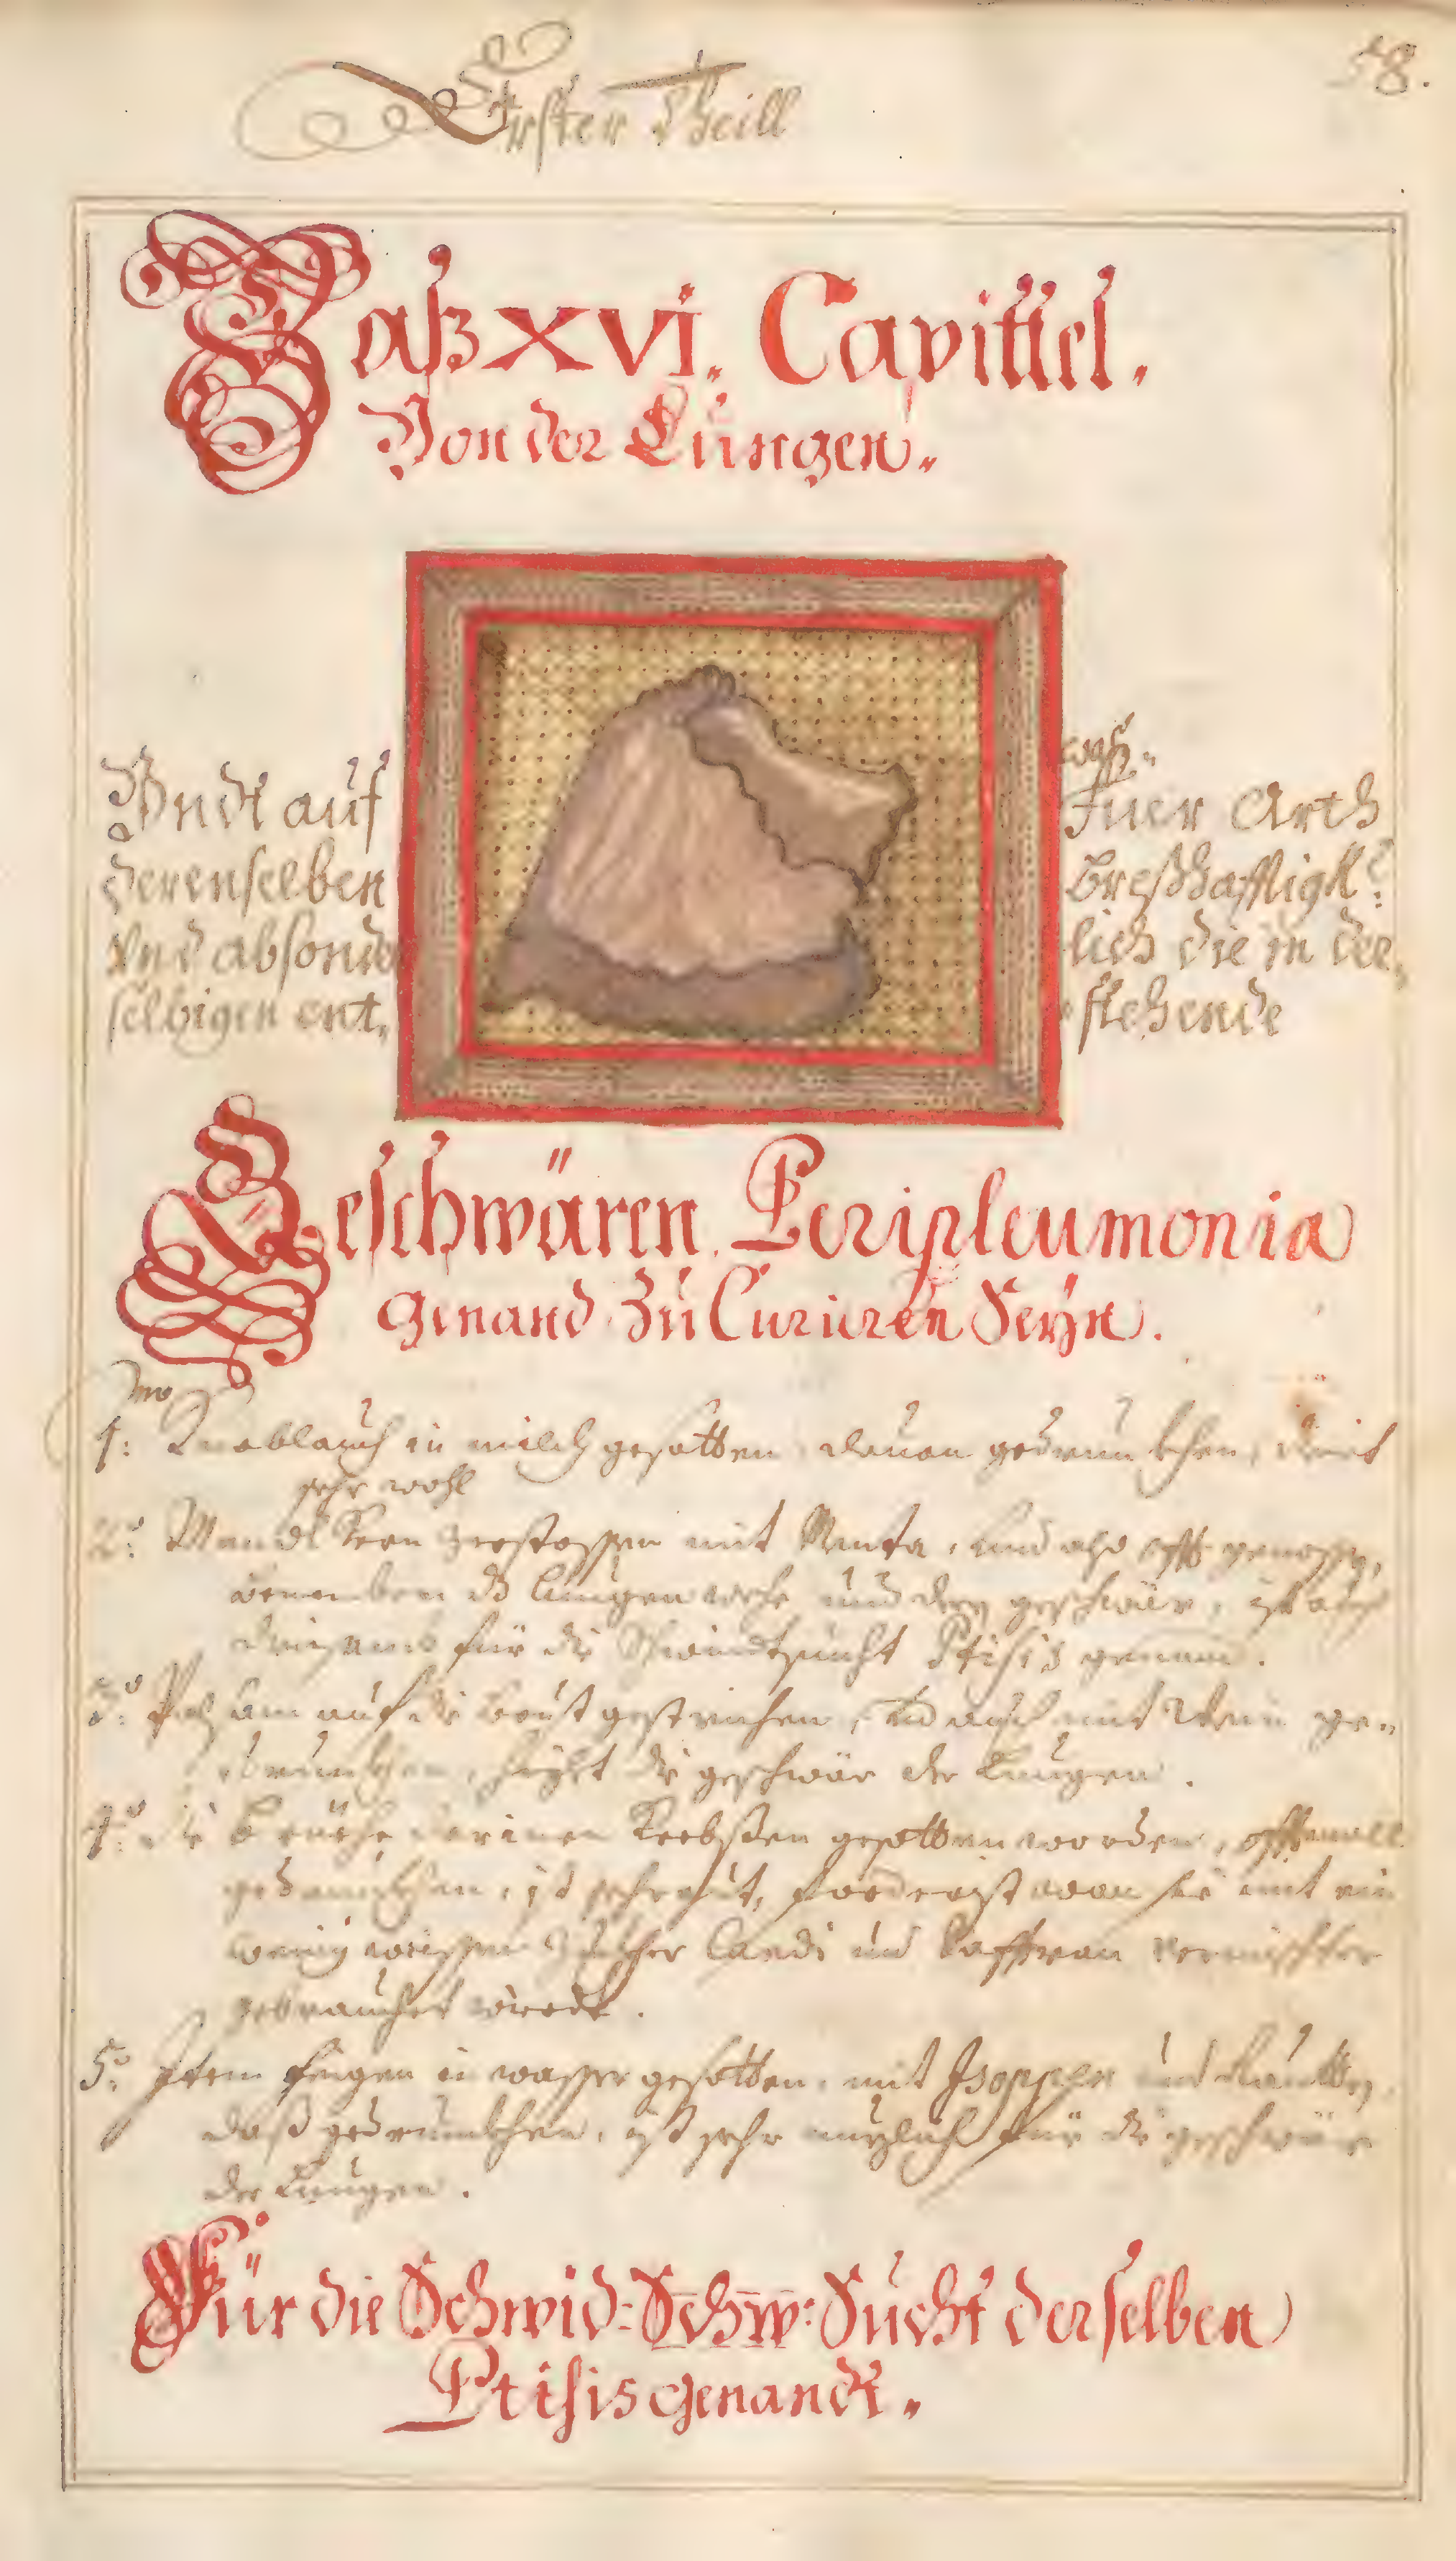 Erster Theill
58.
Daß XVI. Capittel.
Von der Lungen.
Vndt auf
waß
Fuer Arth
derenselben
Breßhafftigk:
Vnd absonder
lich die in der,
selbigen ent,
stehende
Geschwären Peripleumonia
Genand zu Curieren Seyn.
1: mo Knoblauch in milch gesotten, dauon gedrunkhen, dient
sehr wohl
2: Mandl Kern zerstossen mit Menta, und also offt genossen,
benemben dz lungen wehe und deren geschwär, ist auch
für die Schwindtsucht Ptisis genand.
3: Balsam auf die brust gestrichen, und auch mit Wein ge=
drunkhen, heylet die geschwär der Lungen.
4: die brüehe darinen Krebßen gesotten worden, offtermall
gedrunkhen, ist sehr guet, forderist wan sie mit ein
wenig weissen Zucher Candi und Saffran vermischter
gebrauchet wirdt.
5: Item feigen in wasser gesotten, mit Isoppen und Rautten,
daß gedrunkhen, ist sehr nuzlich für die geschwär
der Lungen.
Für die Schwid: Schw: Sucht derselben
Ptisis genandt.